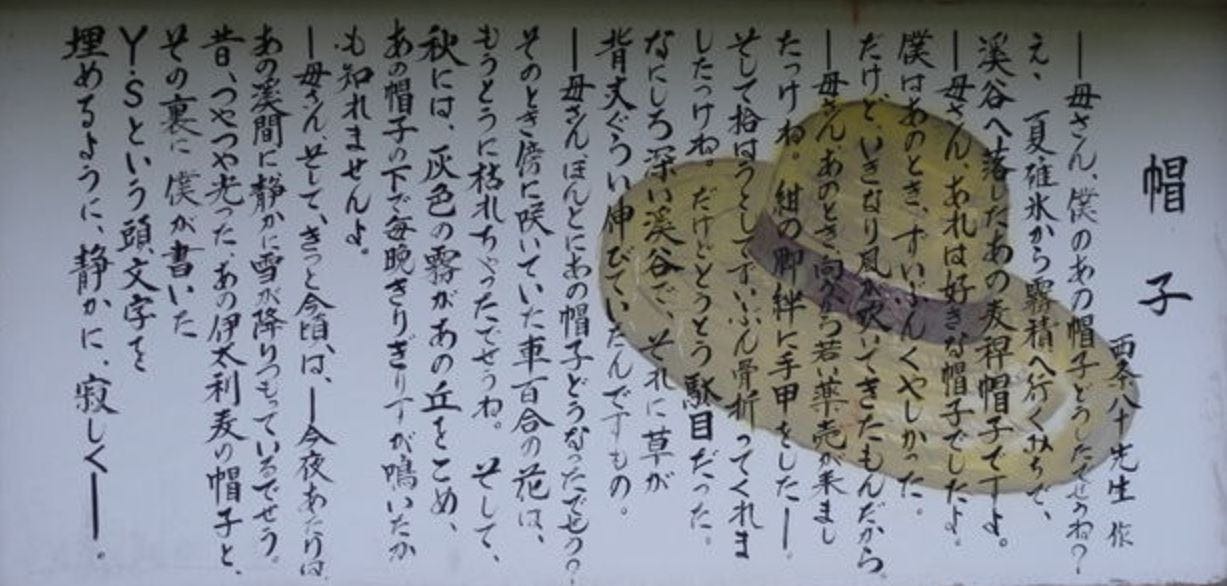 帽子
西条八十先生 作
―母さん、僕のあの帽子どうしたでせうね?
え、夏碓氷から霧積へ行くみちで、
渓谷へ落したあの麦稈帽子ですよ。
―母さん、あれは好きな帽子でしたよ。
僕はあのとき、ずいぶんくやしかった。
だけど、いきなり風が吹いてきたもんだから。
―母さん、あのとき向から若い薬売が来まし
たっけね。紺の脚絆に手甲をした―。
そして拾はうとしてずいぶん骨折ってくれま
したっけね。だけどとうとう駄目だった。
なにしろ深い渓谷で、それに草が
背丈ぐらい伸びていたんですもの。
―母さん、ほんとにあの帽子どうなったでせう?
そのとき傍に咲いていた車百合の花は、
もうとうに枯れちゃったでせうね。そして、
秋には、灰色の霧があの丘をこめ、
あの帽子の下で毎晩きりぎりすが鳴いたか
も知れませんよ。
―母さん、そして、きっと今頃は、―今夜あたりは、
あの渓間に静かに雪が降りつもっているでせう。
昔、つやつや光った、あの伊太利麦の帽子と、
その裏に僕が書いた
Y.Sという頭文字を
埋めるように、静かに、寂しく―。